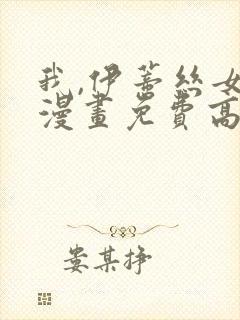 我,伊蒂丝女
漫畫免費高
娄某挣